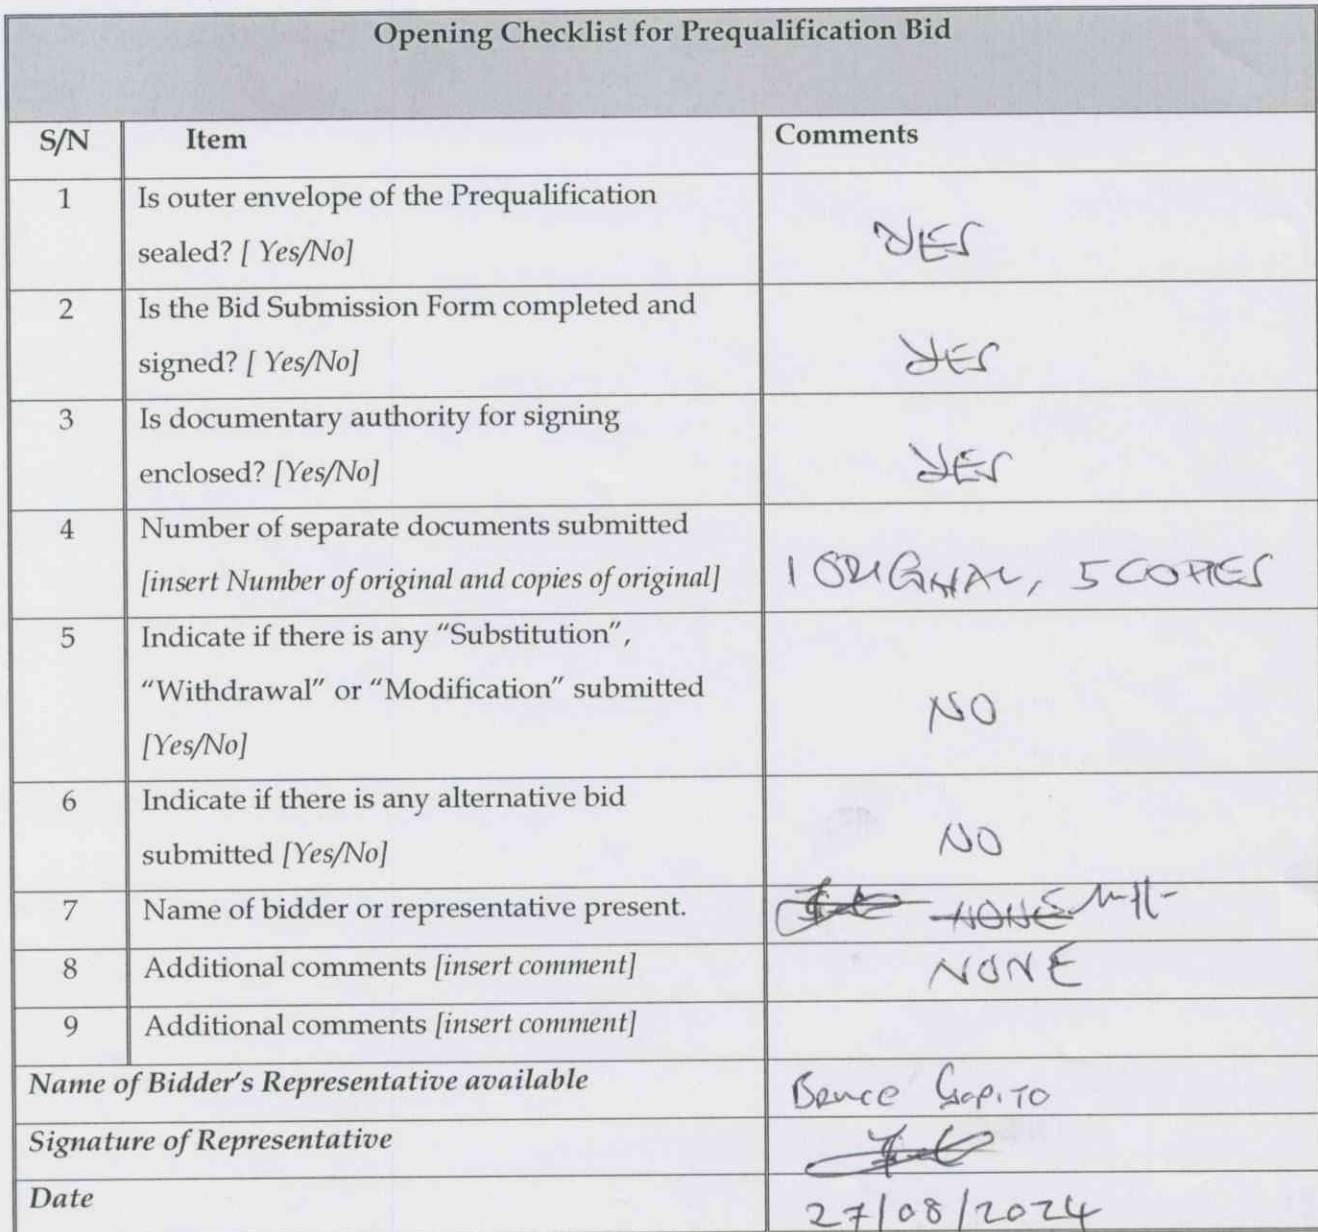 Opening Checklist for Prequalification Bid
S/N Item Comments
1 Is outer envelope of the Prequalification
sealed? [ Yes/No] YES
2 Is the Bid Submission Form completed and
signed? [ Yes/No] YES
3 Is documentary authority for signing
enclosed? [Yes/No] YES
4 Number of separate documents submitted
[insert Number of original and copies of original] 1 ORIGINAL, 5 COPIES
5 Indicate if there is any “Substitution”,
“Withdrawal” or “Modification” submitted
[Yes/No] NO
6 Indicate if there is any alternative bid
submitted [Yes/No] NO
7 Name of bidder or representative present. NONE
8 Additional comments [insert comment] NONE
9 Additional comments [insert comment]
Name of Bidder's Representative available Bruce
Signature of Representative
Date 27/08/2024